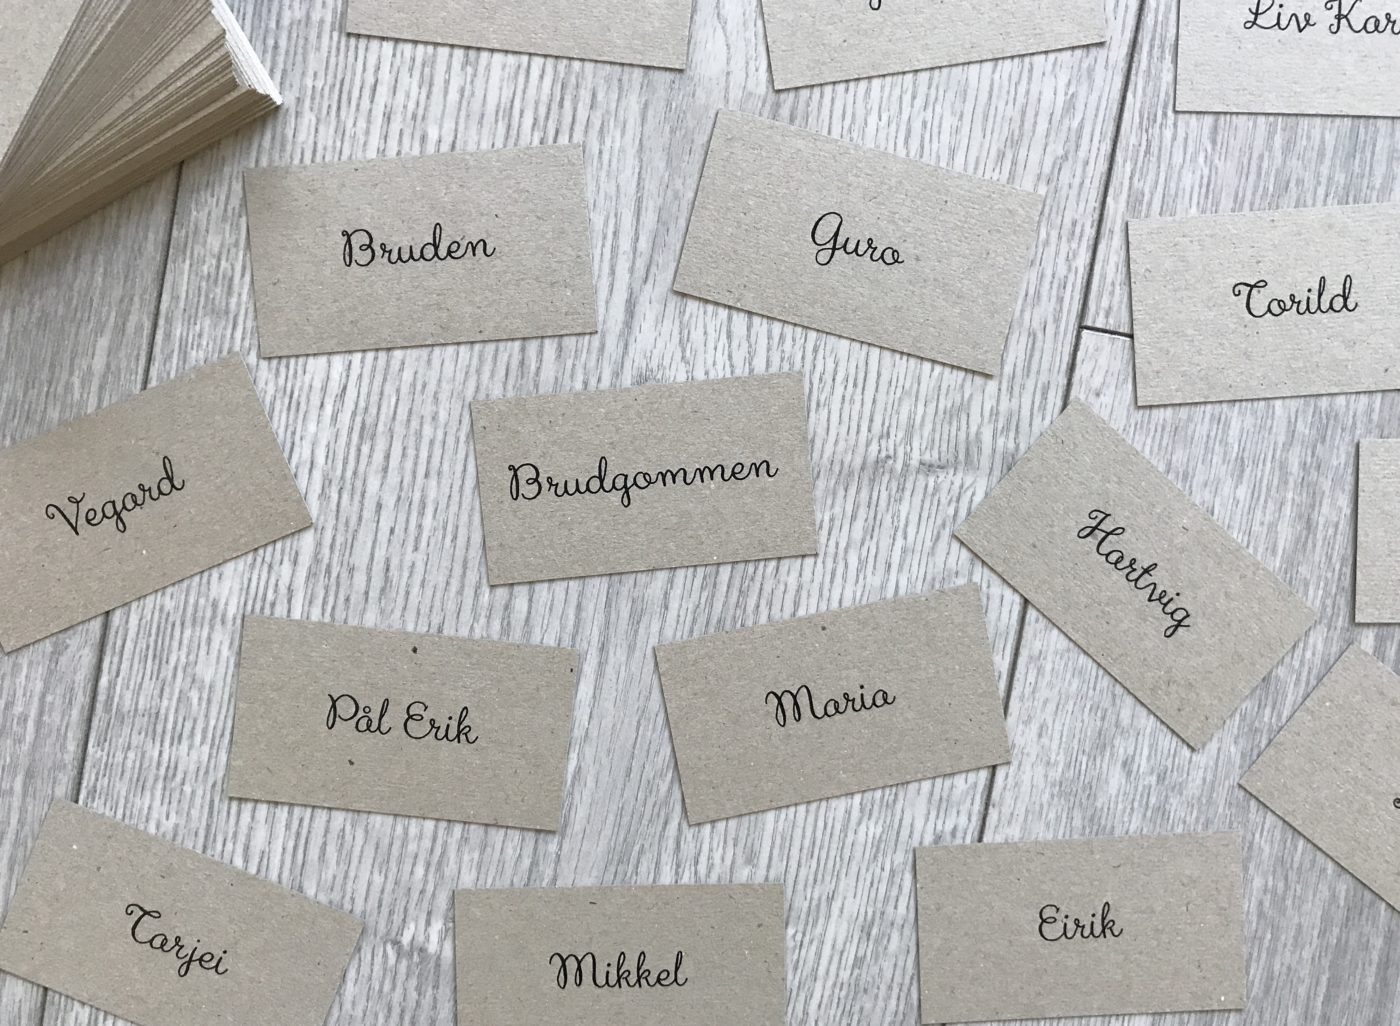 Liv Kar
Bruden
Guro
Torild
Vegard
Brudgommen
Hartvig
Pål Erik
Maria
Tarjei
Mikkel
Eirik